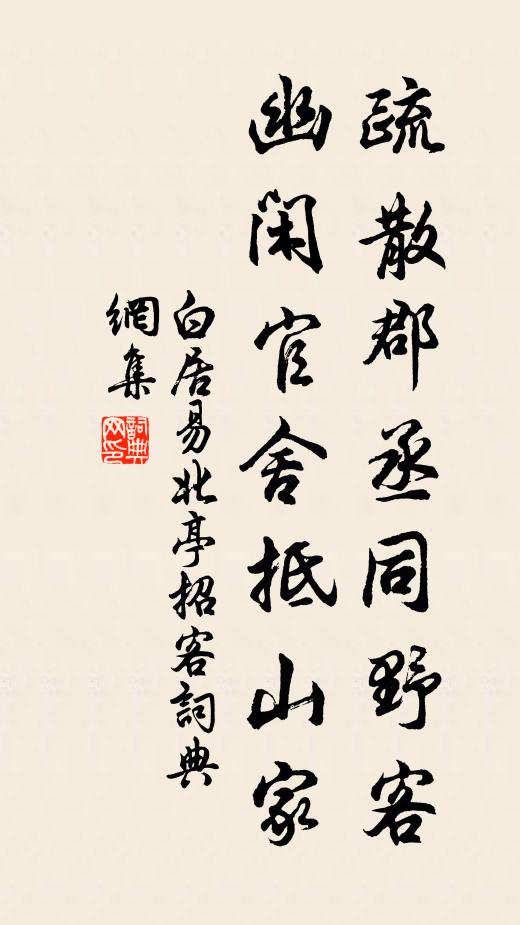 疏散郡丞同野客
幽閑官舍抵山家
白居易北亭招客詞典
網集
詞典
网印